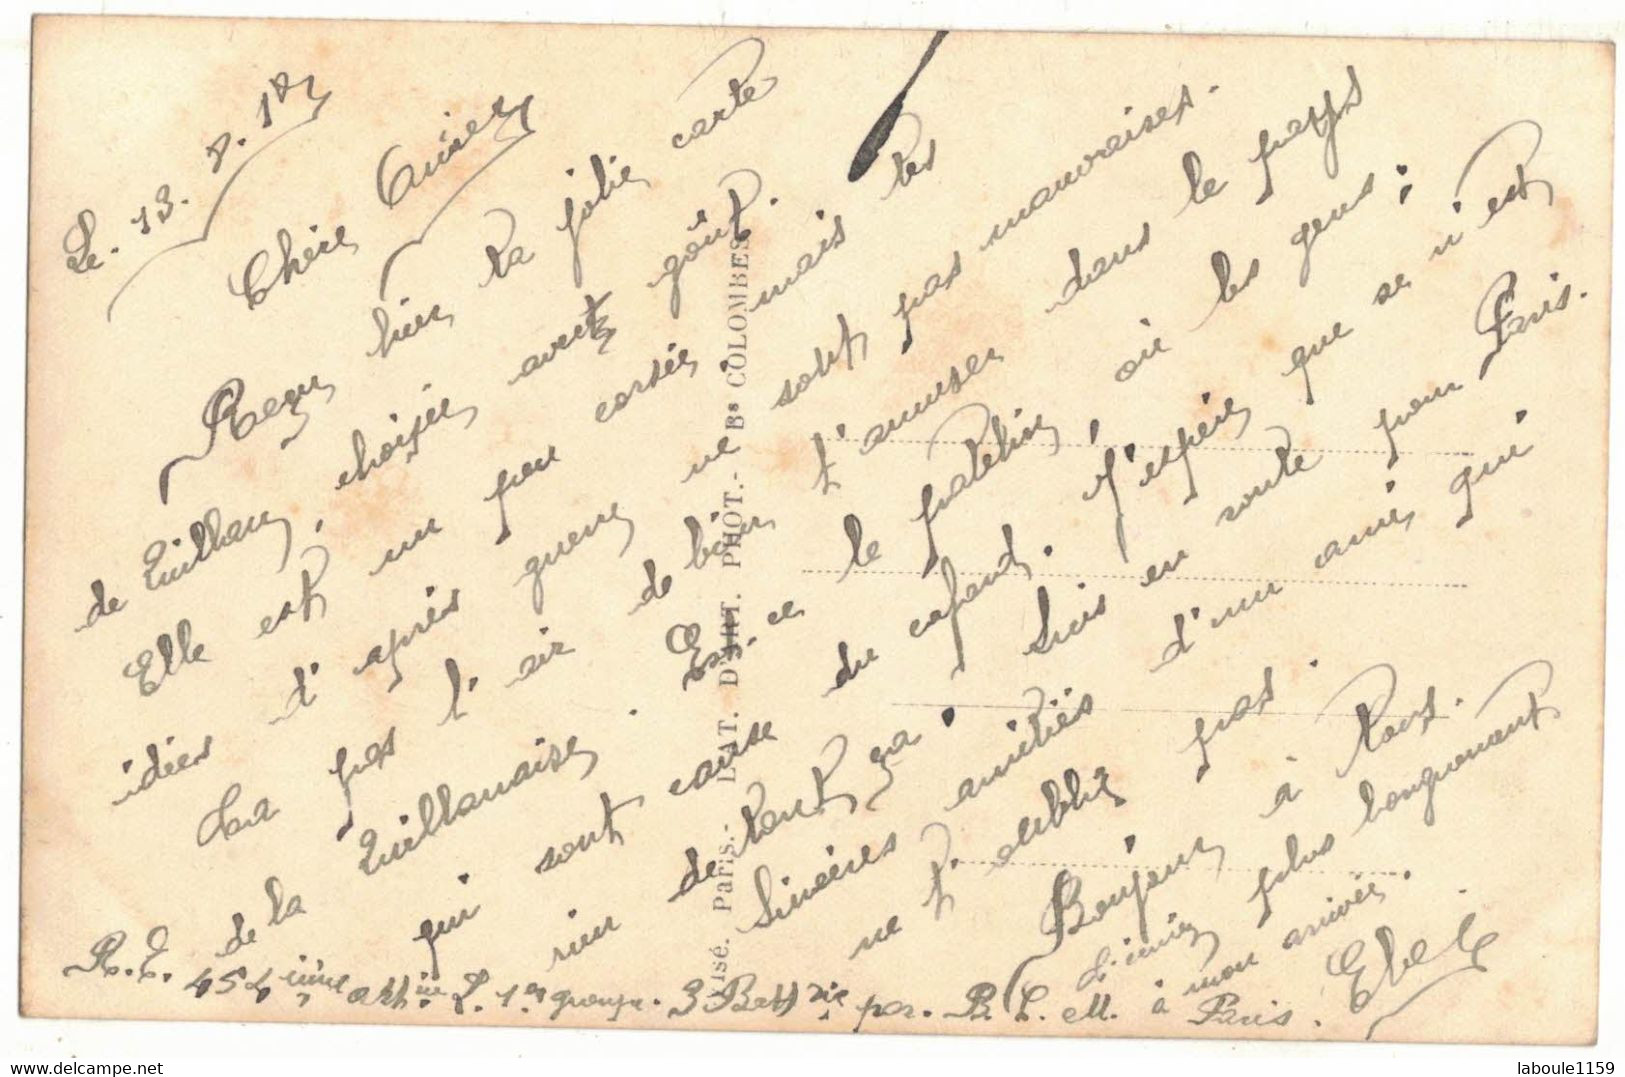 Le. 13. 7. 18
Chère Amie
Reçu hier ta jolie carte
de Quillan, choisie avec goût.
Elle est un peu corsée mais tes
idées d'après guerre ne sont pas mauvaises.
La pas l'air de bien t'amuser dans le pays
de la Quillanaise. Est-ce le patelin, où les gens ;
qui sont cause du cafard. J'espère que ce n'est
rien de tout ça ! Suis en route pour Paris.
Sincères amitiés d'un ami qui
ne t'oublie pas.
Bonjour à tous.
plus longuement
à mon arrivée.
R. E. 454 ième artie L. 1er groupe. 3 Battrie par. B. C. M. à Paris.
Visé. Paris.- L'AT. D'ART. PHOT.- Bs COLOMBES
www.delcampe.net
laboule1159